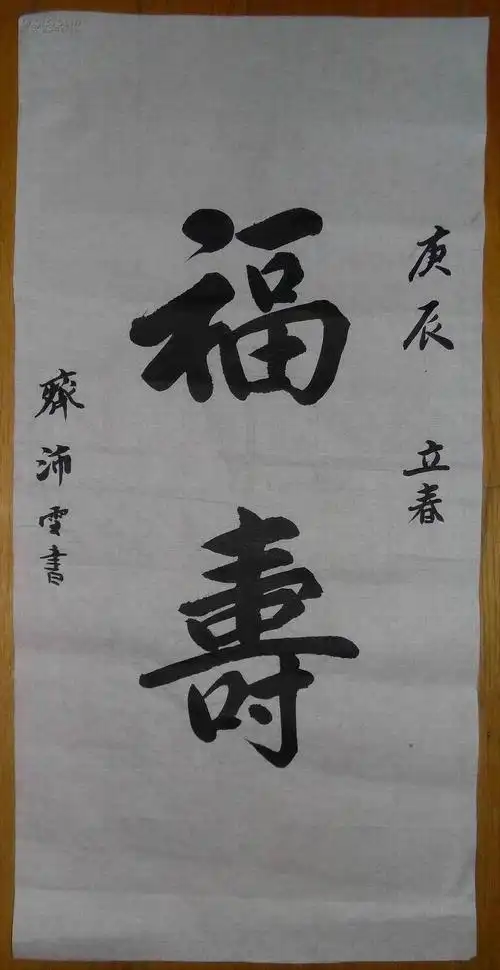 庚辰 立春
福壽
齊沛雪書